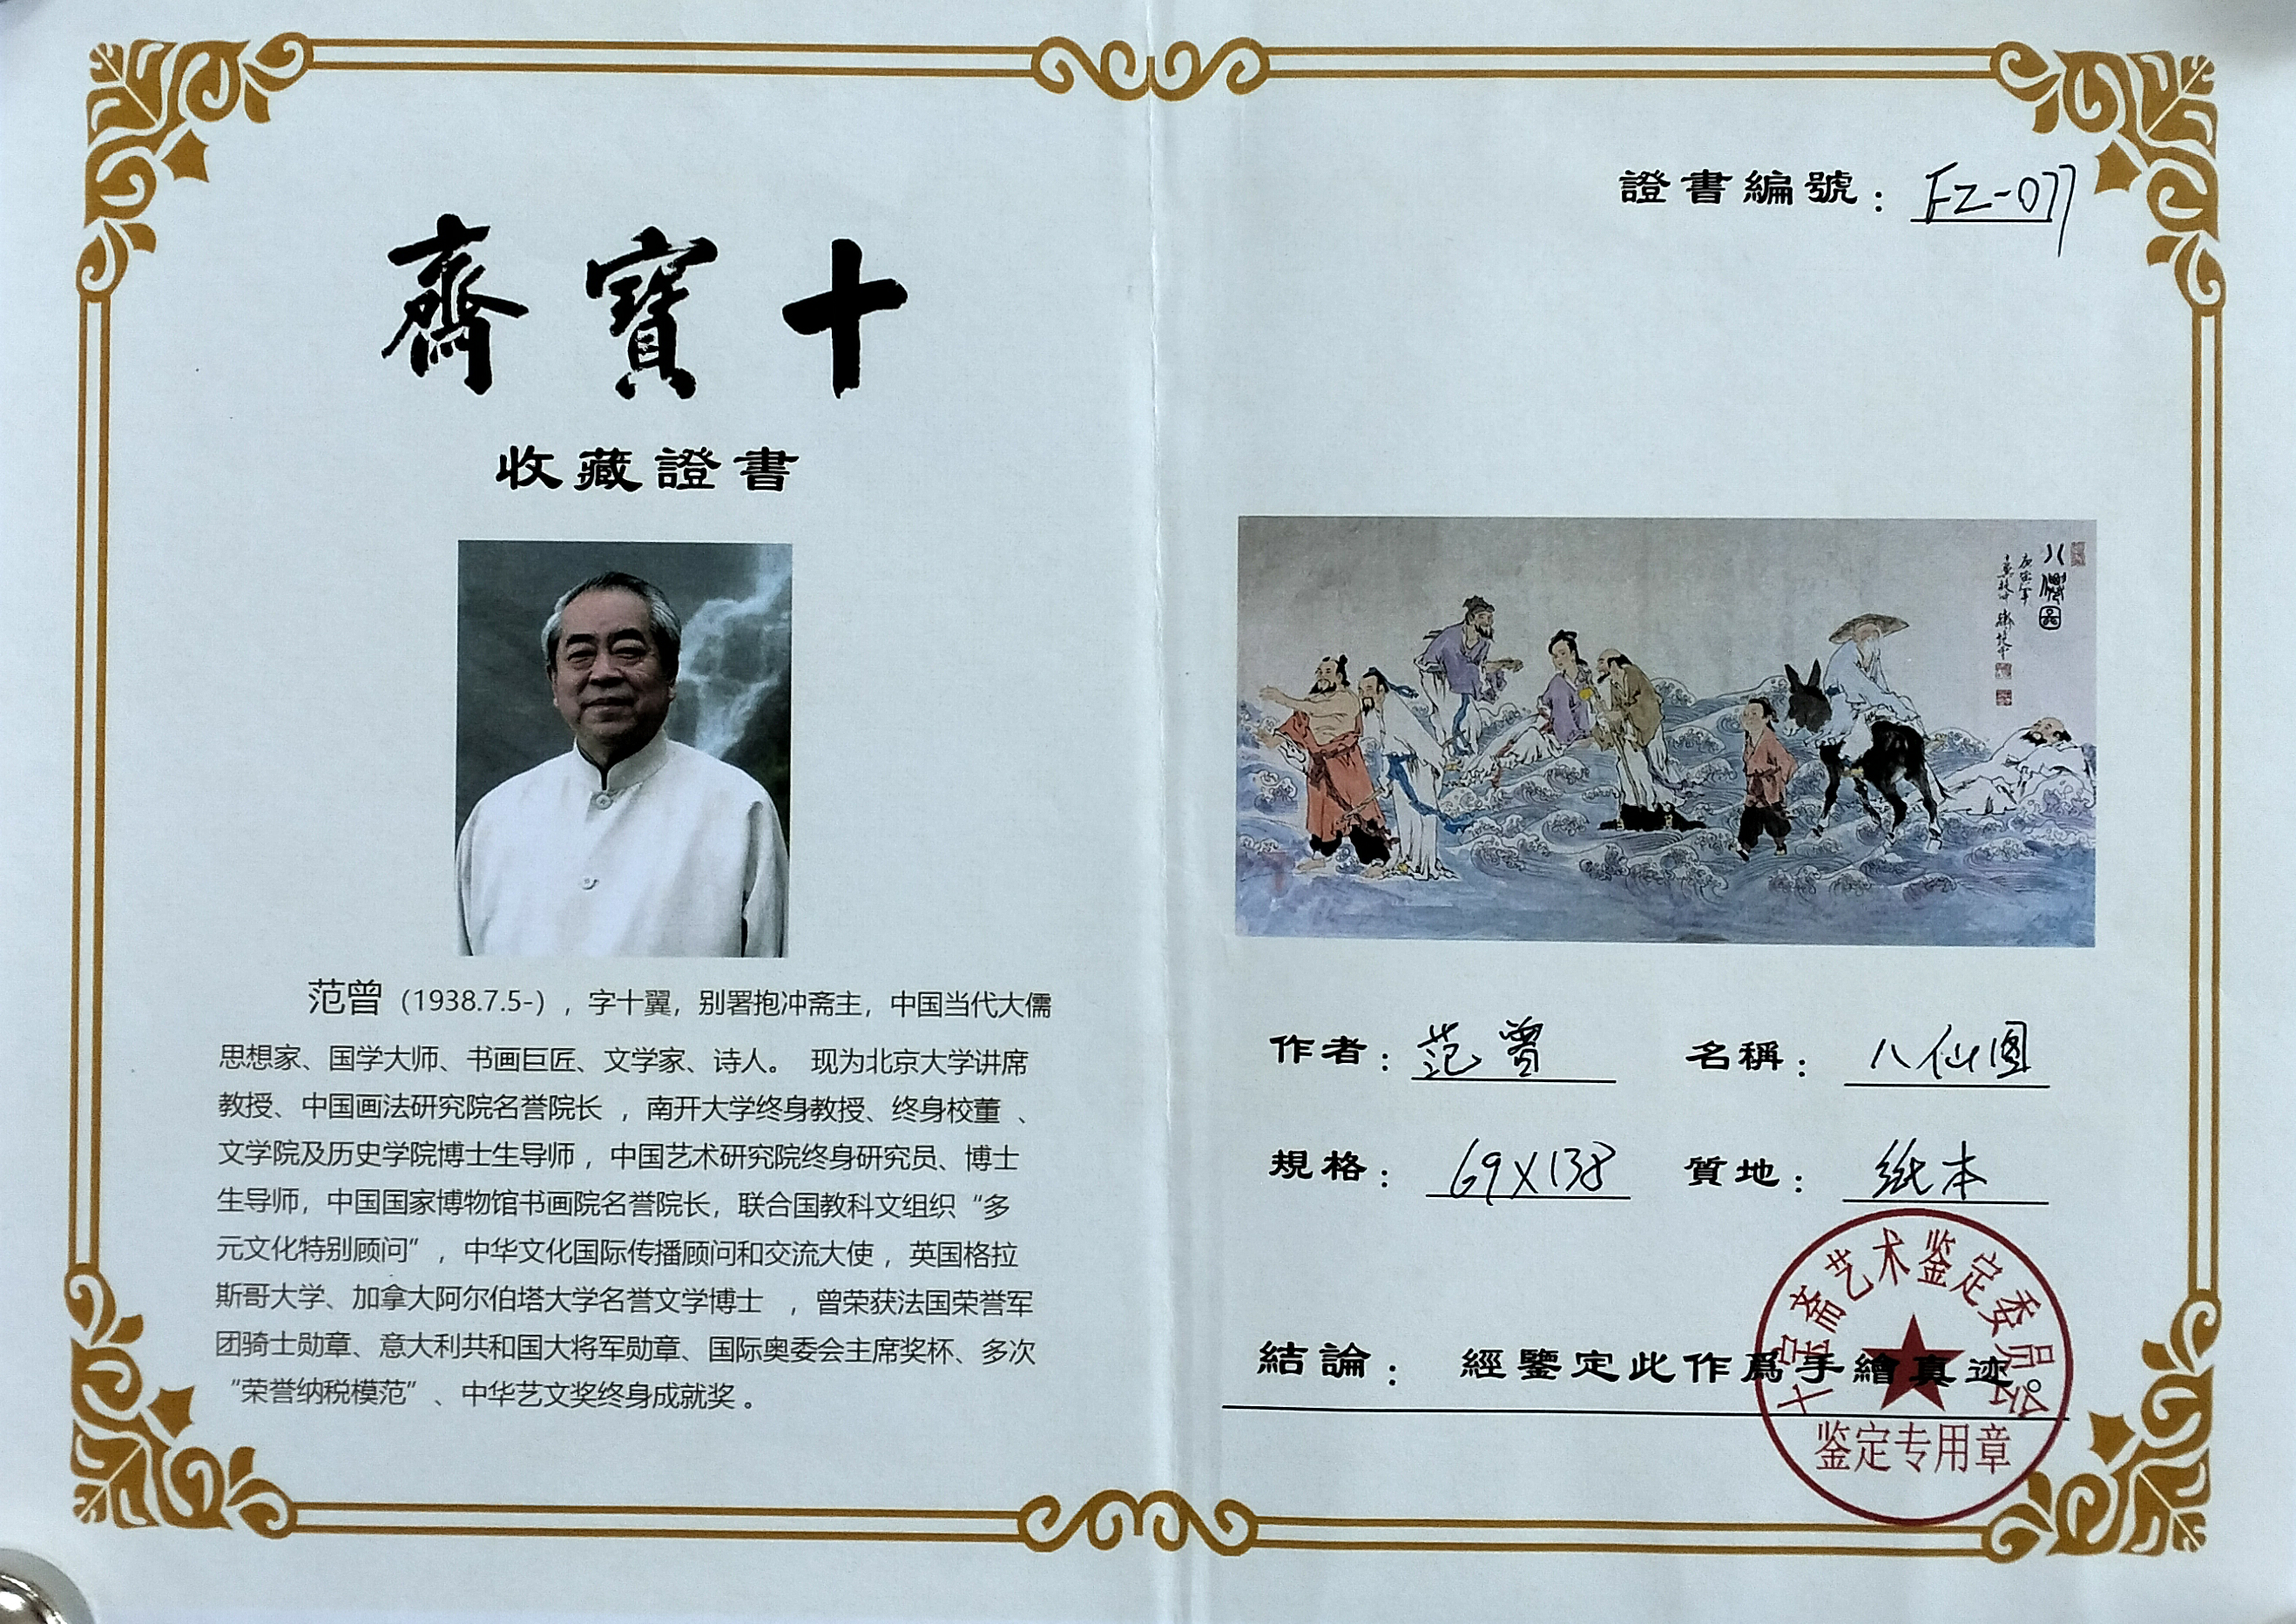 齋寶十
收藏證書
范曾（1938.7.5-），字十翼，别署抱冲斋主，中国当代大儒
思想家、国学大师、书画巨匠、文学家、诗人。 现为北京大学讲席
教授、中国画法研究院名誉院长 ，南开大学终身教授、终身校董 、
文学院及历史学院博士生导师 ，中国艺术研究院终身研究员、博士
生导师，中国国家博物馆书画院名誉院长，联合国教科文组织“多
元文化特别顾问”，中华文化国际传播顾问和交流大使 ，英国格拉
斯哥大学、加拿大阿尔伯塔大学名誉文学博士 ，曾荣获法国荣誉军
团骑士勋章、意大利共和国大将军勋章、国际奥委会主席奖杯、多次
“荣誉纳税模范”、中华艺文奖终身成就奖 。
證書編號：FZ-077
八僊圖
作者：范曾 名稱：八仙图
規格：69X138 質地：纸本
結論：經鑒定此作爲手繪真迹。
十宝斋艺术鉴定委员会
鉴定专用章